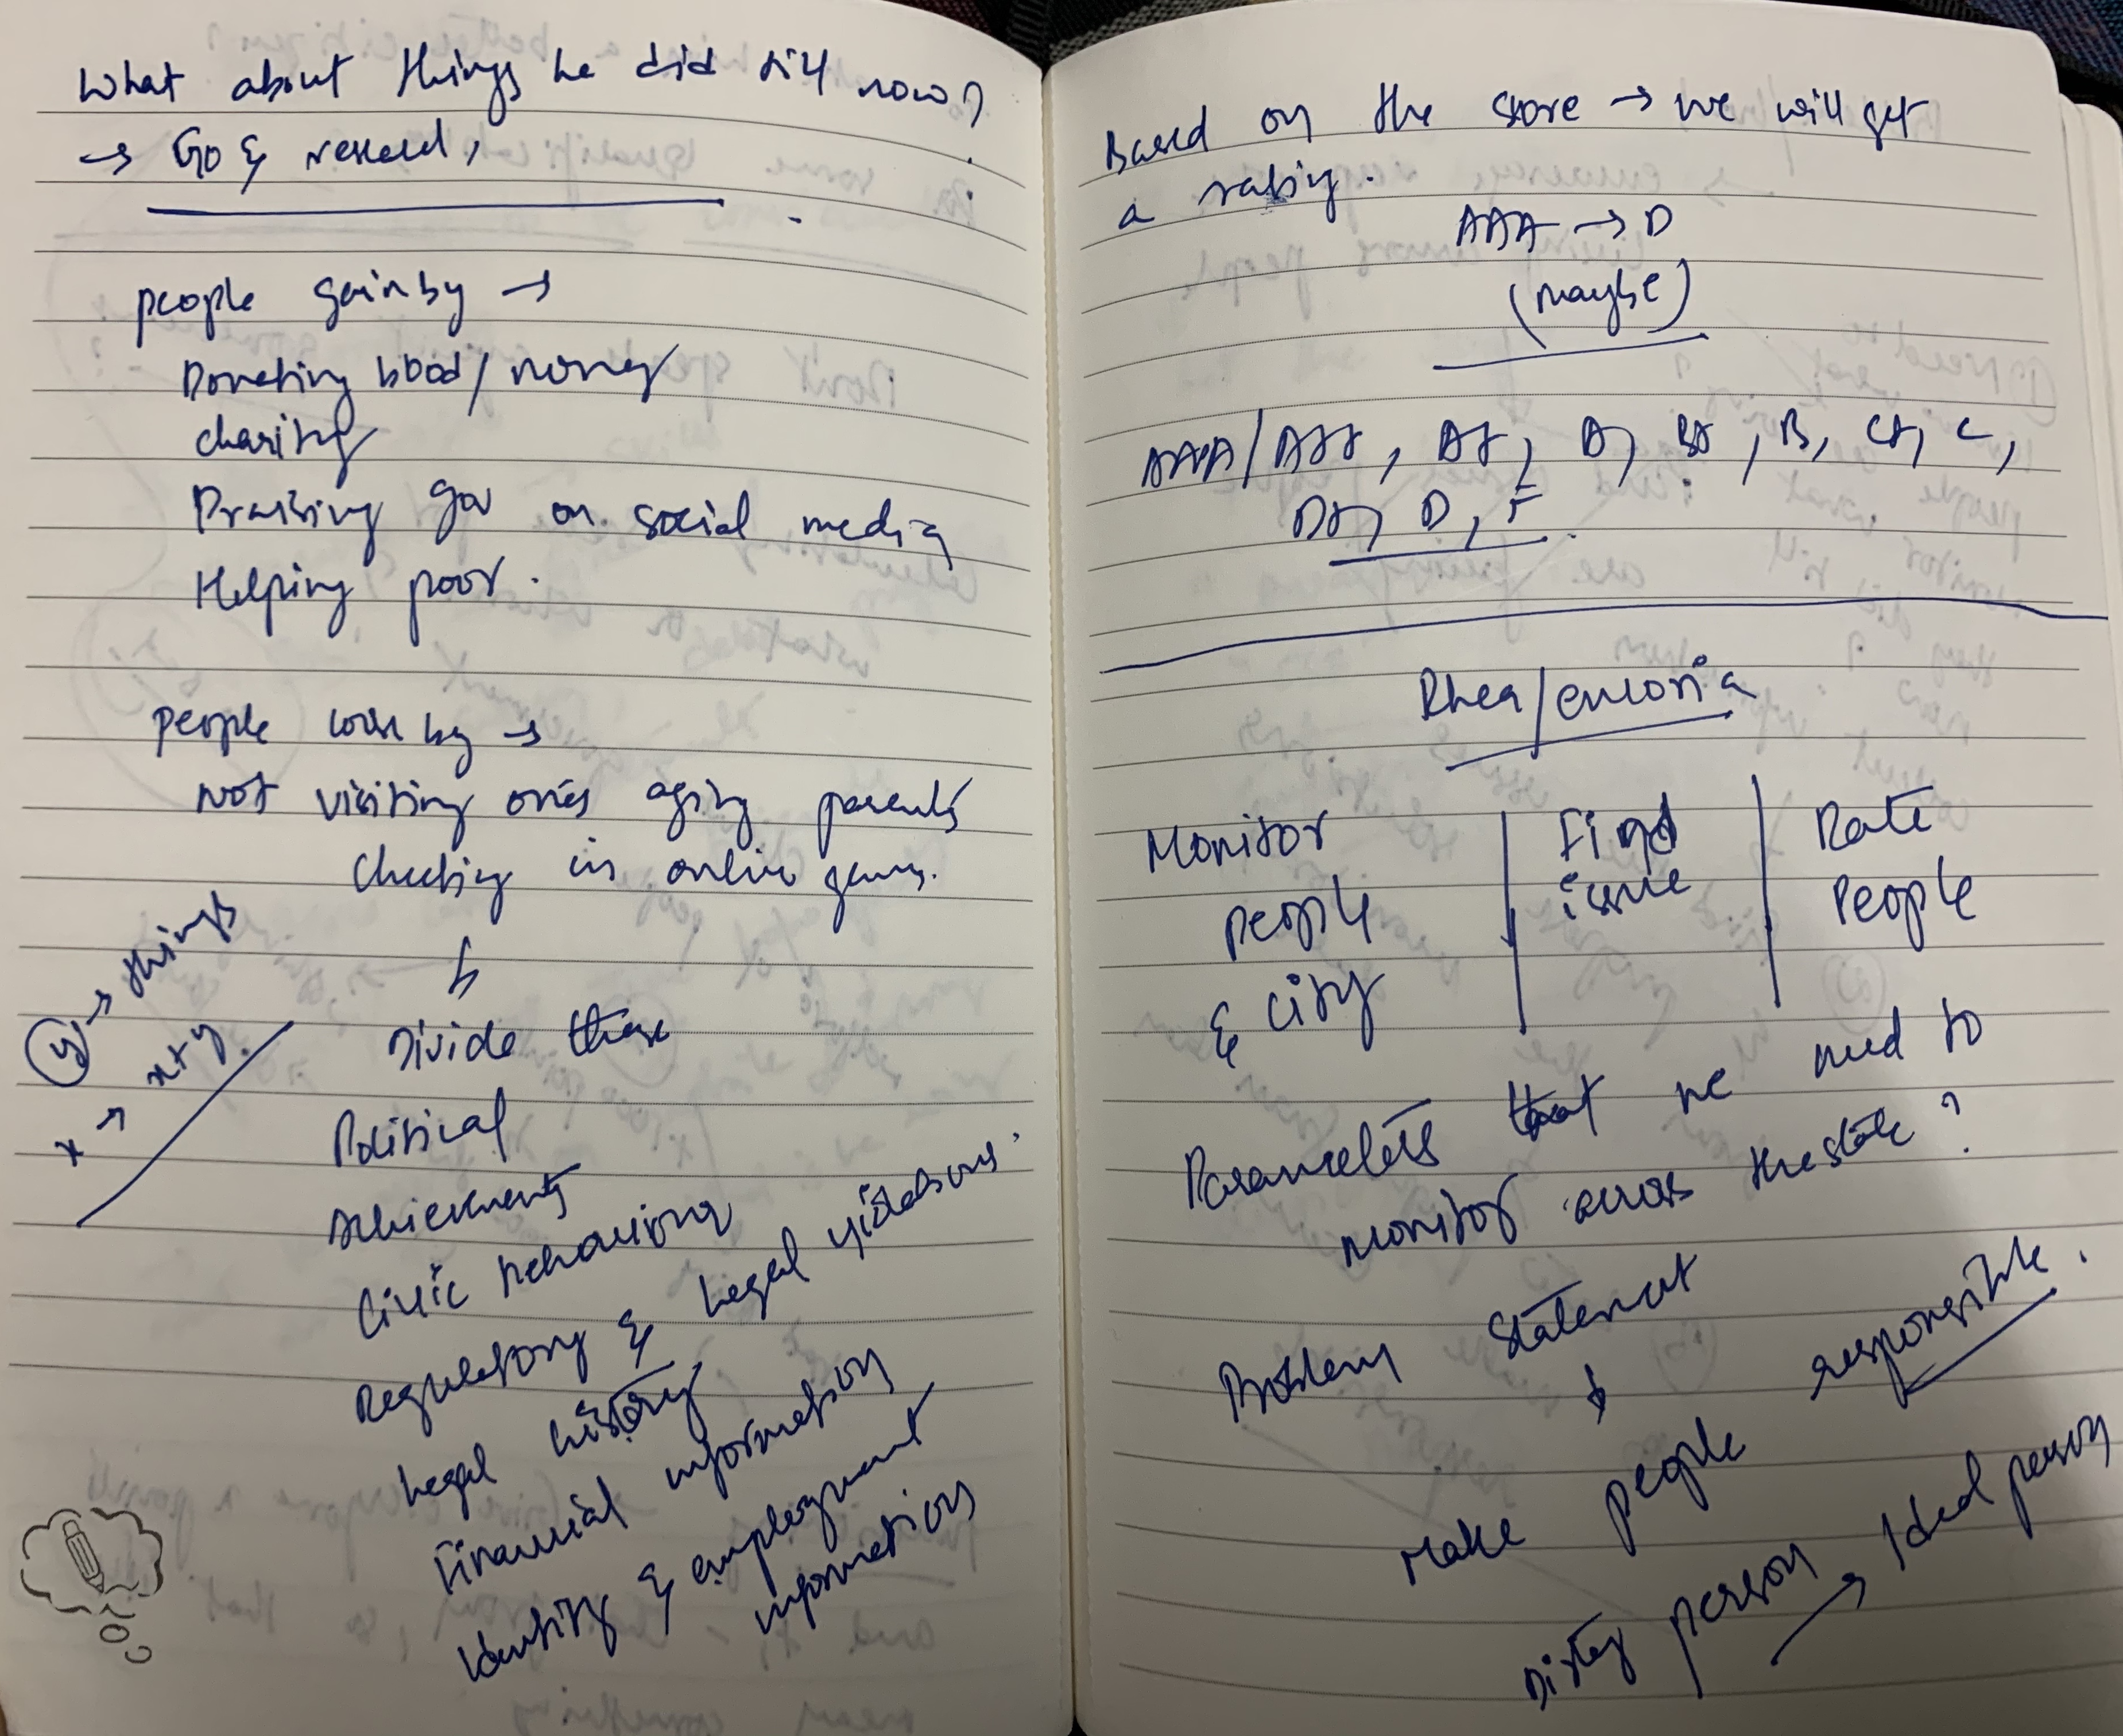 What about things he did till now?
→ Go & research,
people gain by →
Donating blood/money
charity
Praising gov on social media
Helping poor.
people loose by →
not visiting ones aging parents
Cheating in online games.
y → things
x → x+y.
Divide these
Political
Achievements
Civic behaviour
Regulatory & Legal violations.
Legal history
Financial information
Identity & employment
information
Based on the score → we will get
a rating.
AAA → D
(maybe)
AAA/A++, A+, A, B+, B, C+, C,
D+, D, F.
Rhea/
Monitor
people
& city
Find
issue
Rate
People
Parameters that we need to
monitor across the state?
Problem Statement
↓
Make people responsible.
Dirty person → Ideal person